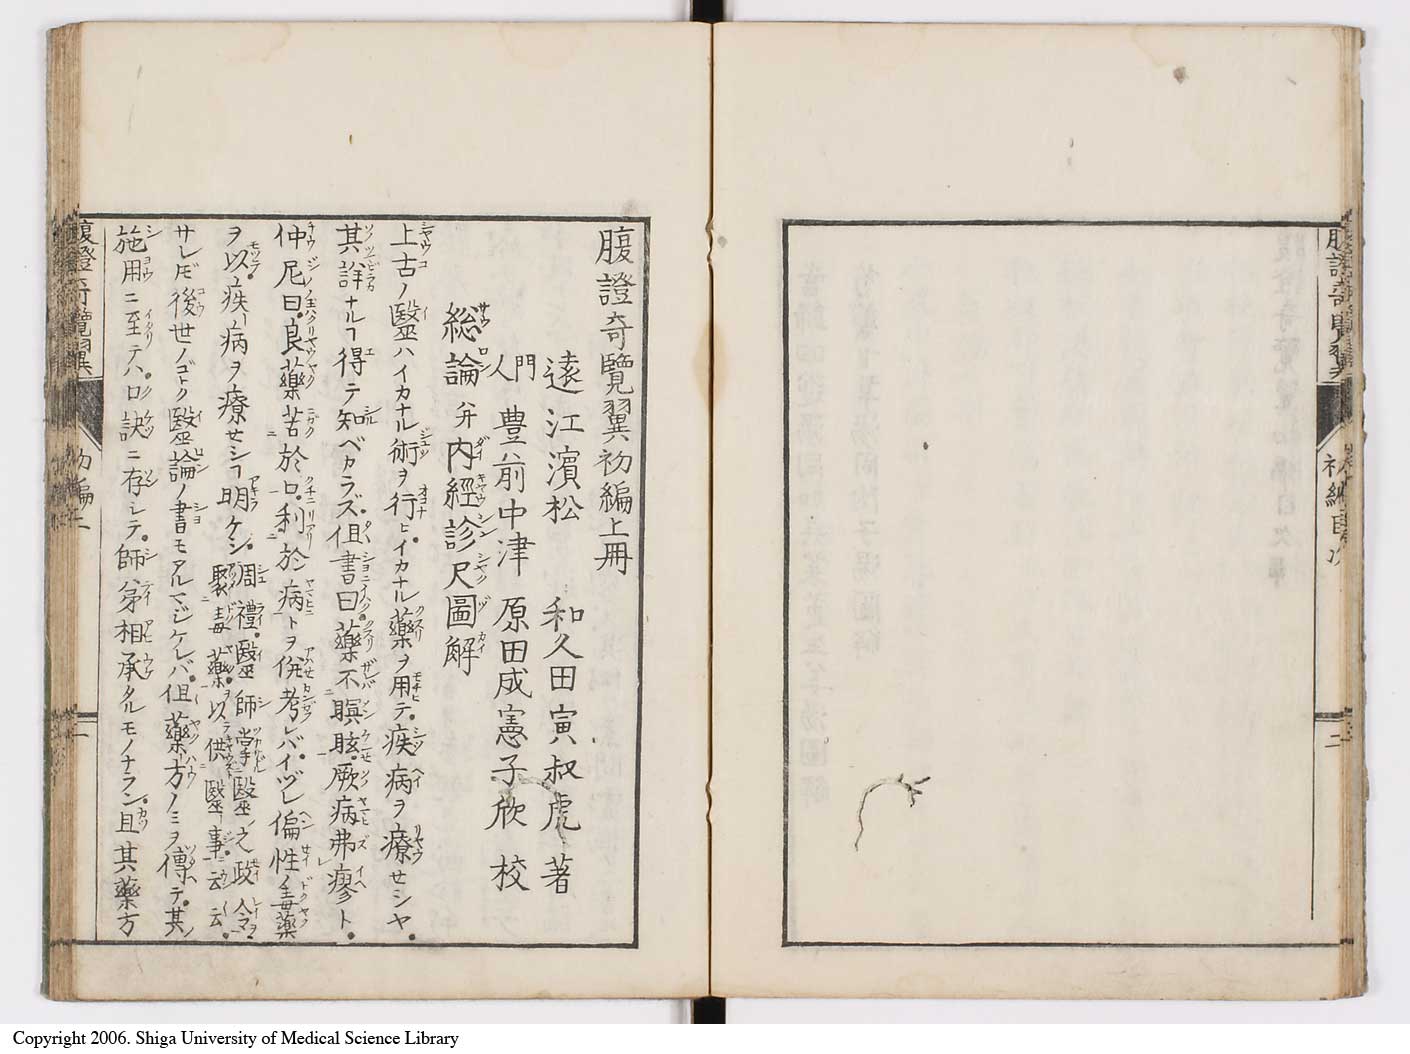 腹證奇覽翼
初編目次
二
腹證奇覽翼初編上册
遠江濱松 和久田寅叔虎 著
門人 豊前中津 原田成憲子欣 校
総論 并 内經診尺圖解
上古ノ毉ハイカナル術ヲ行ヒイカナル藥ヲ用テ疾病ヲ療セシヤ。
其詳ナルヿ得テ知ベカラズ。但書曰藥不瞑眩。厥病弗瘳ト。
仲尼曰。良藥苦於口。利於病トヲ併考レバイヅレ偏性ノ毒藥
ヲ以。疾病ヲノ療セシヿ明ケシ。周禮。毉師掌毉之政令。聚毒藥。以供毉事。云云。
サレ𪜈後世ノゴトク毉論ノ書モアルマジケレバ。但藥方ノミヲ傳テ。其
施用ニ至テハ口訣ニ存シテ。師弟相承タルモノナラン。且其藥方
腹證奇覽翼
初編上
一
Copyright 2006. Shiga University of Medical Science Library